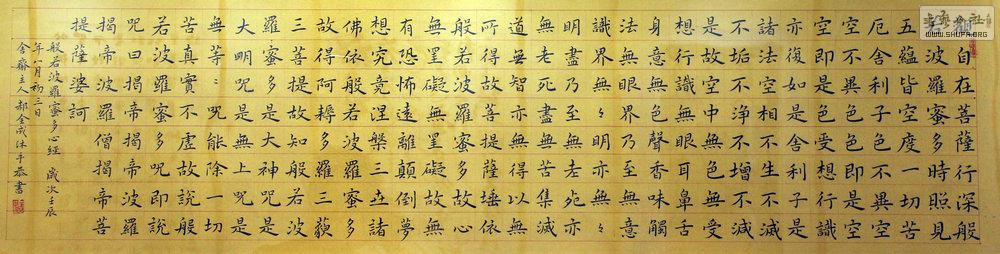 觀自在菩薩行深般
若波羅蜜多時照見
五蘊皆空度一切苦
厄舍利子色不異空
空不異色色即是空
空即是色受想行識
亦復如是舍利子是
諸法空相不生不滅
不垢不淨不增不減
是故空中無色無受
想行識無眼耳鼻舌
身意無色聲香味觸
法無眼界乃至無意
識界無々明亦無々
明盡乃至無老死亦
無老死盡無苦集滅
道無智亦無得以無
所得故菩提薩埵依
般若波羅蜜多故心
無罣礙無罣礙故無
有恐怖遠離顛倒夢
想究竟涅槃三世諸
佛依般若波羅蜜多
故得阿耨多羅三藐
三菩提故知般若波
羅蜜多是大神咒是
大明咒是無上咒是
無等々咒能除一切
苦真實不虛故說般
若波羅蜜多咒即說
咒曰揭帝揭帝波羅
揭帝波羅僧揭帝菩
提薩婆訶
般若波羅蜜多心經 歲次壬辰
年八月初三日
舍齋主人郝金成沐手恭書
WWW.SHUFA.ORG